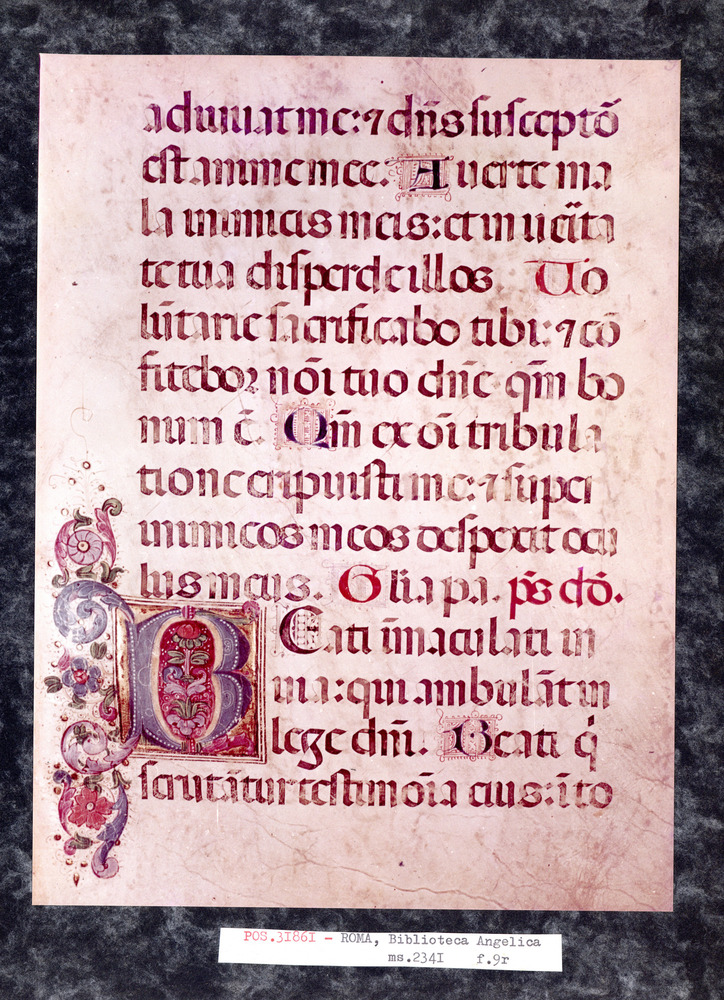 adiuuat me: ⁊ dñs susceptō
est anime mee. Auerte ma
la inimicis meis: et in ueīta
te tua disperde illos Uo
lūtarie sacrificabo tibi: ⁊ cō
fitebor nōi tuo dñe qm̄ bo
num ē. Qm̄ ex oī tribula
tione eripuisti me: ⁊ super
inimicos meos despexit ocu
lus meus. Gl̄ia pa. p̄s dō.
Eati īmaculati in
uia: qui ambulāt in
lege dñi. Beati q̇
scrutātur testimoīa eius: ī to
POS.31861 - ROMA, Biblioteca Angelica
ms.2341 f.9r